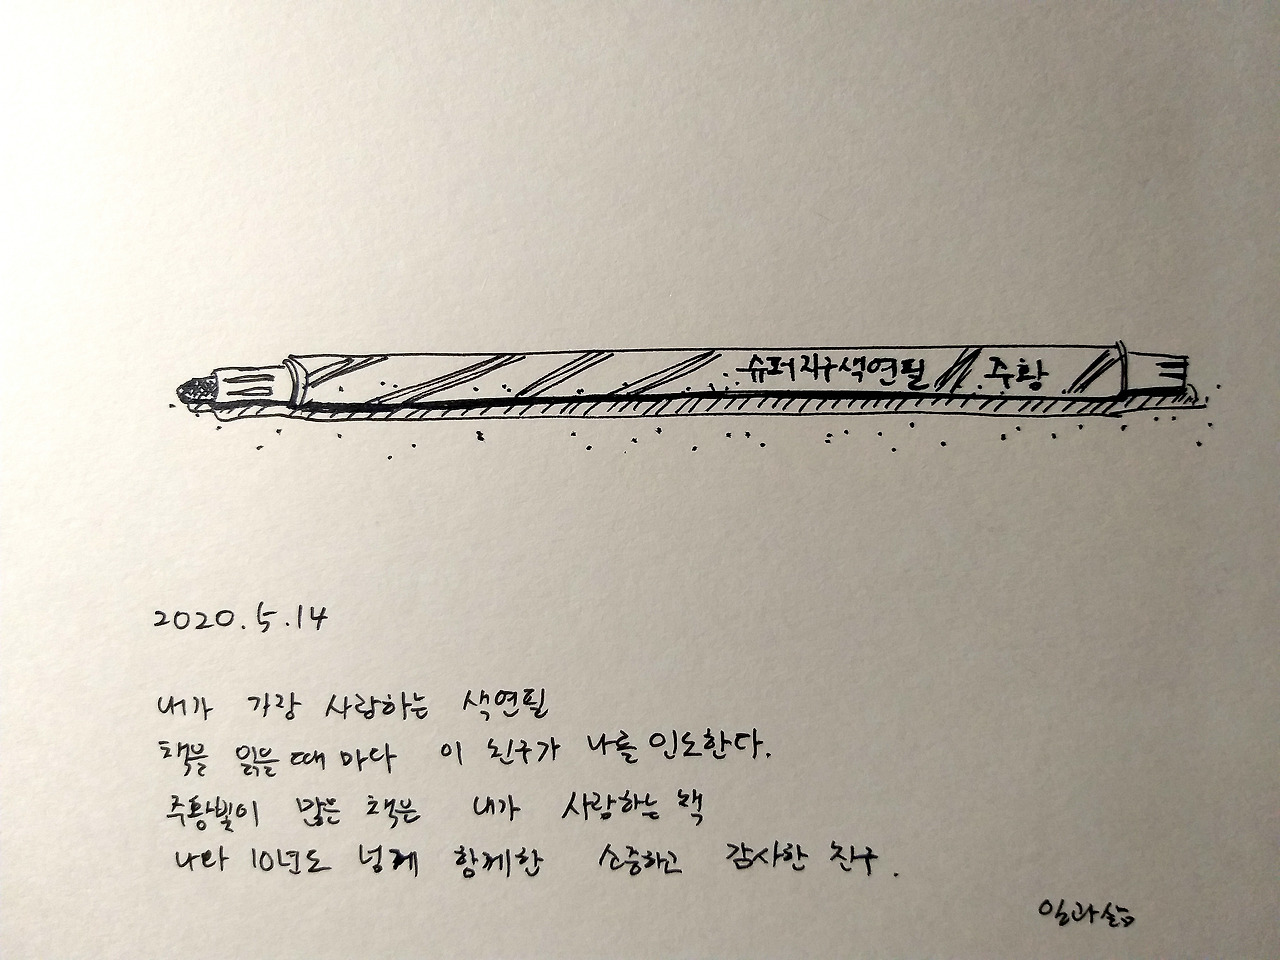 슈퍼지구색연필 주황
2020.5.14
내가 가장 사랑하는 색연필
책을 읽을 때 마다 이 친구가 나를 인도한다.
주황빛이 많은 책은 내가 사랑하는 책
나와 10년도 넘게 함께한 소중하고 감사한 친구.
일과삶